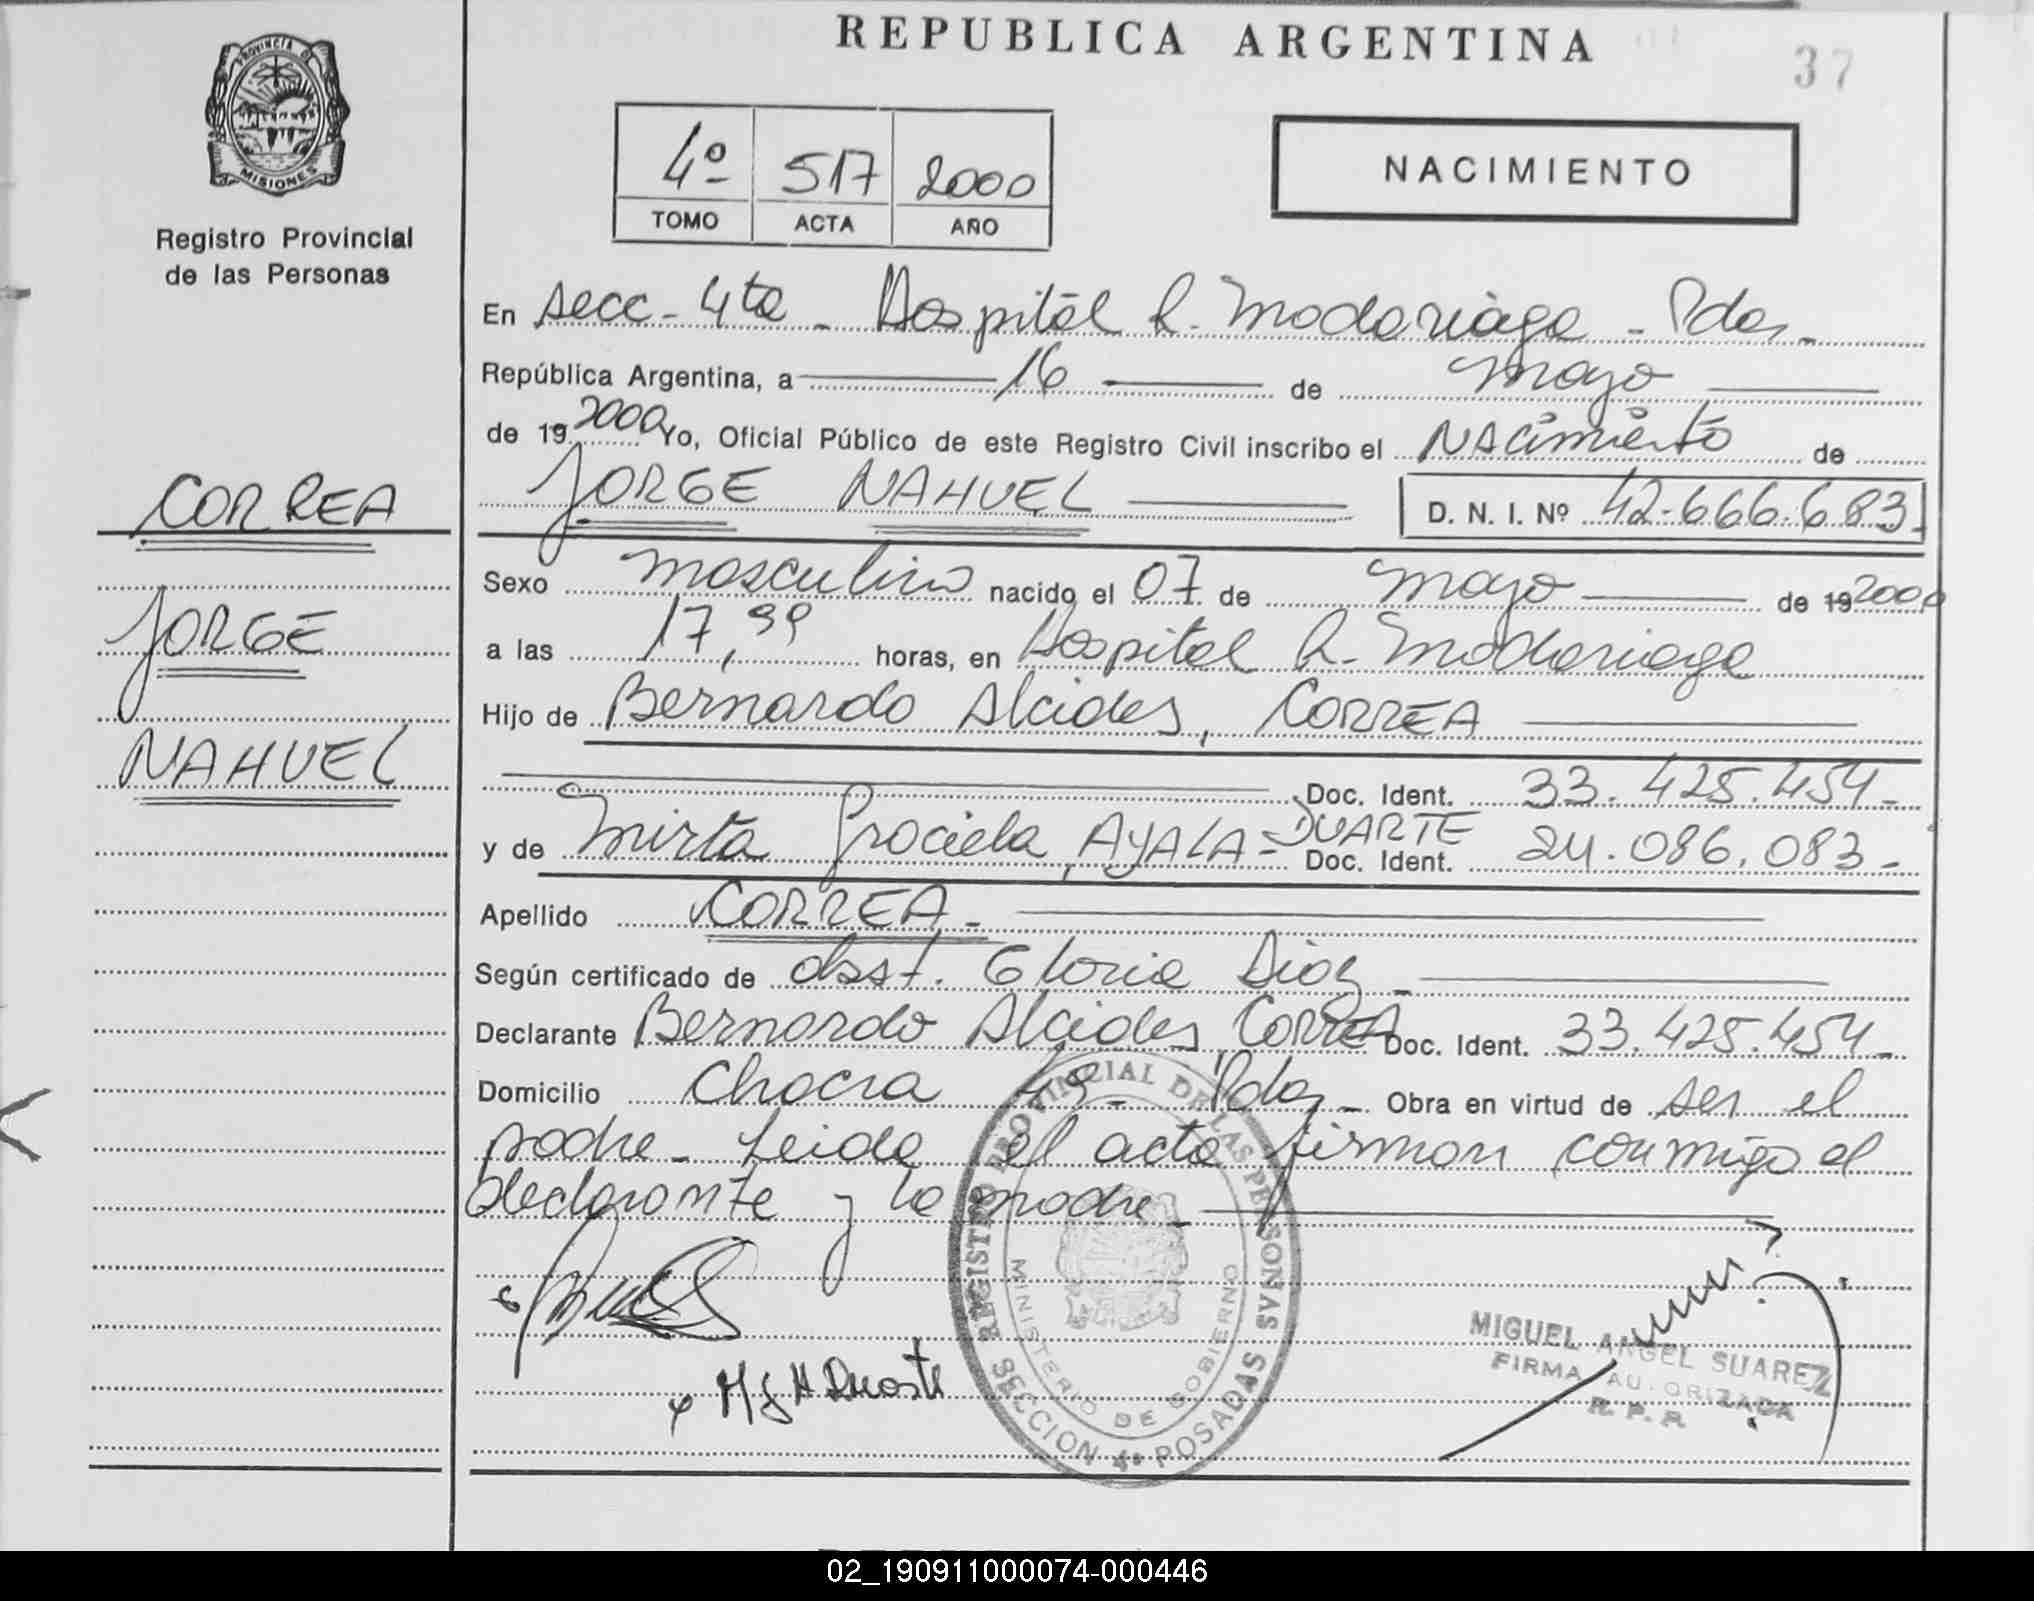 REPUBLICA ARGENTINA
37
PROVINCIA DE
MISIONES
Registro Provincial
de las Personas
4º 517 2000
TOMO ACTA AÑO
NACIMIENTO
En Secc. 4ta - Hospital R. Madariaga - Pdas -
República Argentina, a 16 de mayo
de 19 2000 Yo, Oficial Público de este Registro Civil inscribo el NACimiento de
JORGE NAHUEL D. N. I. Nº 42.666.683.
CORREA
JORGE
NAHUEL
Sexo masculino nacido el 07 de mayo de 19 2000
a las 17, horas, en Hospital R. Madariaga
Hijo de Bernardo Alcides, CORREA
Doc. Ident. 33.425.454-
y de Mirta Graciela, AYALA = DUARTE Doc. Ident. 24.086.083-
Apellido CORREA -
Según certificado de obst. Gloria Diaz -
Declarante Bernardo Alcides CORREA Doc. Ident. 33.425.454-
Domicilio Chacra 49 - Pdas - Obra en virtud de ser el
padre - Leida el acta firman conmigo el
declarante y la madre -
REGISTRO PROVINCIAL DE LAS PERSONAS
MINISTERIO DE GOBIERNO
SECCION 4ª POSADAS
MIGUEL ANGEL SUAREZ
FIRMA AUTORIZADA
R. P. P.
02_190911000074-000446